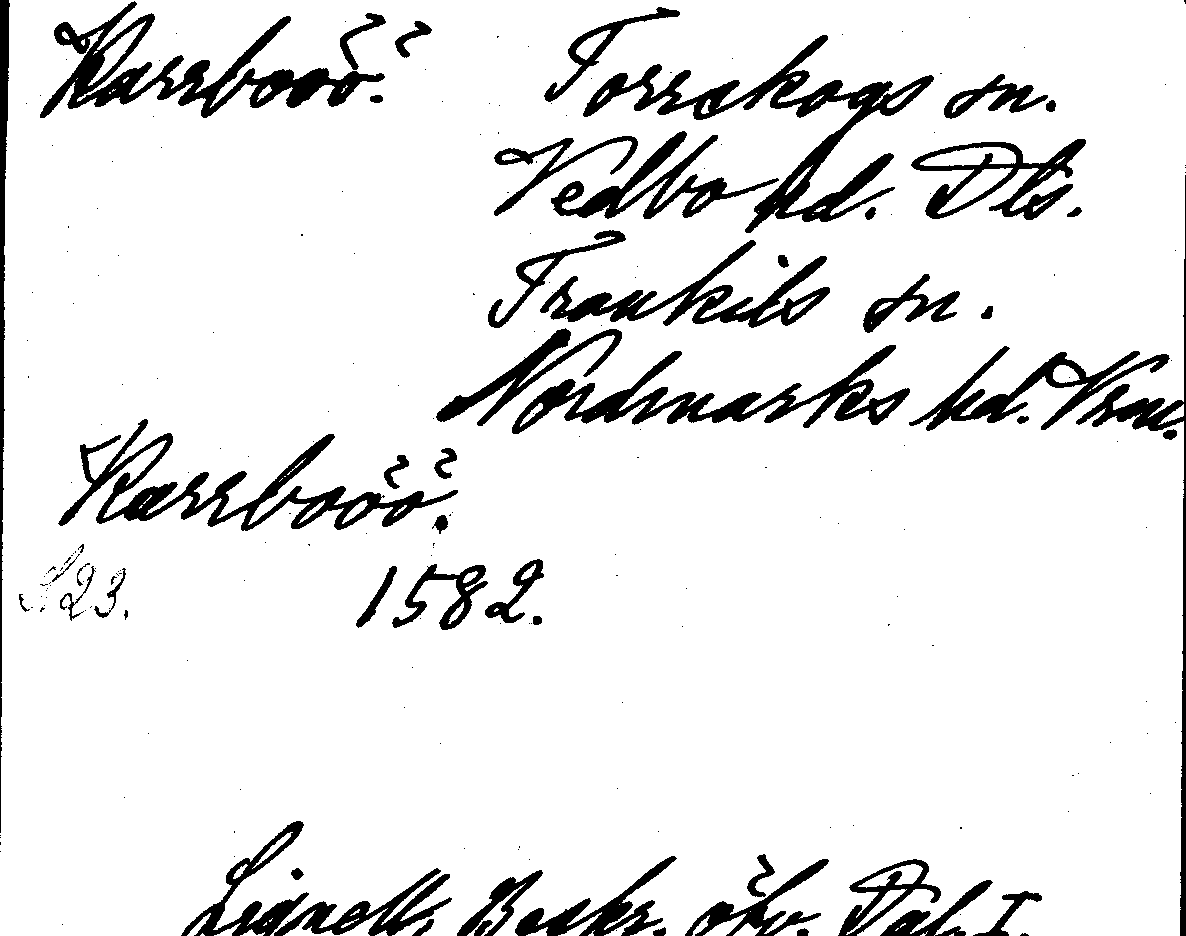 Karrboöö. Torrskogs sn.
Vedbo hd. Dls.
Trankils sn.
Nordmarks hd. Vrml.
Karrboöö.
S 23. 1582.
Lignell, Beskr. öfv. Dal. I.